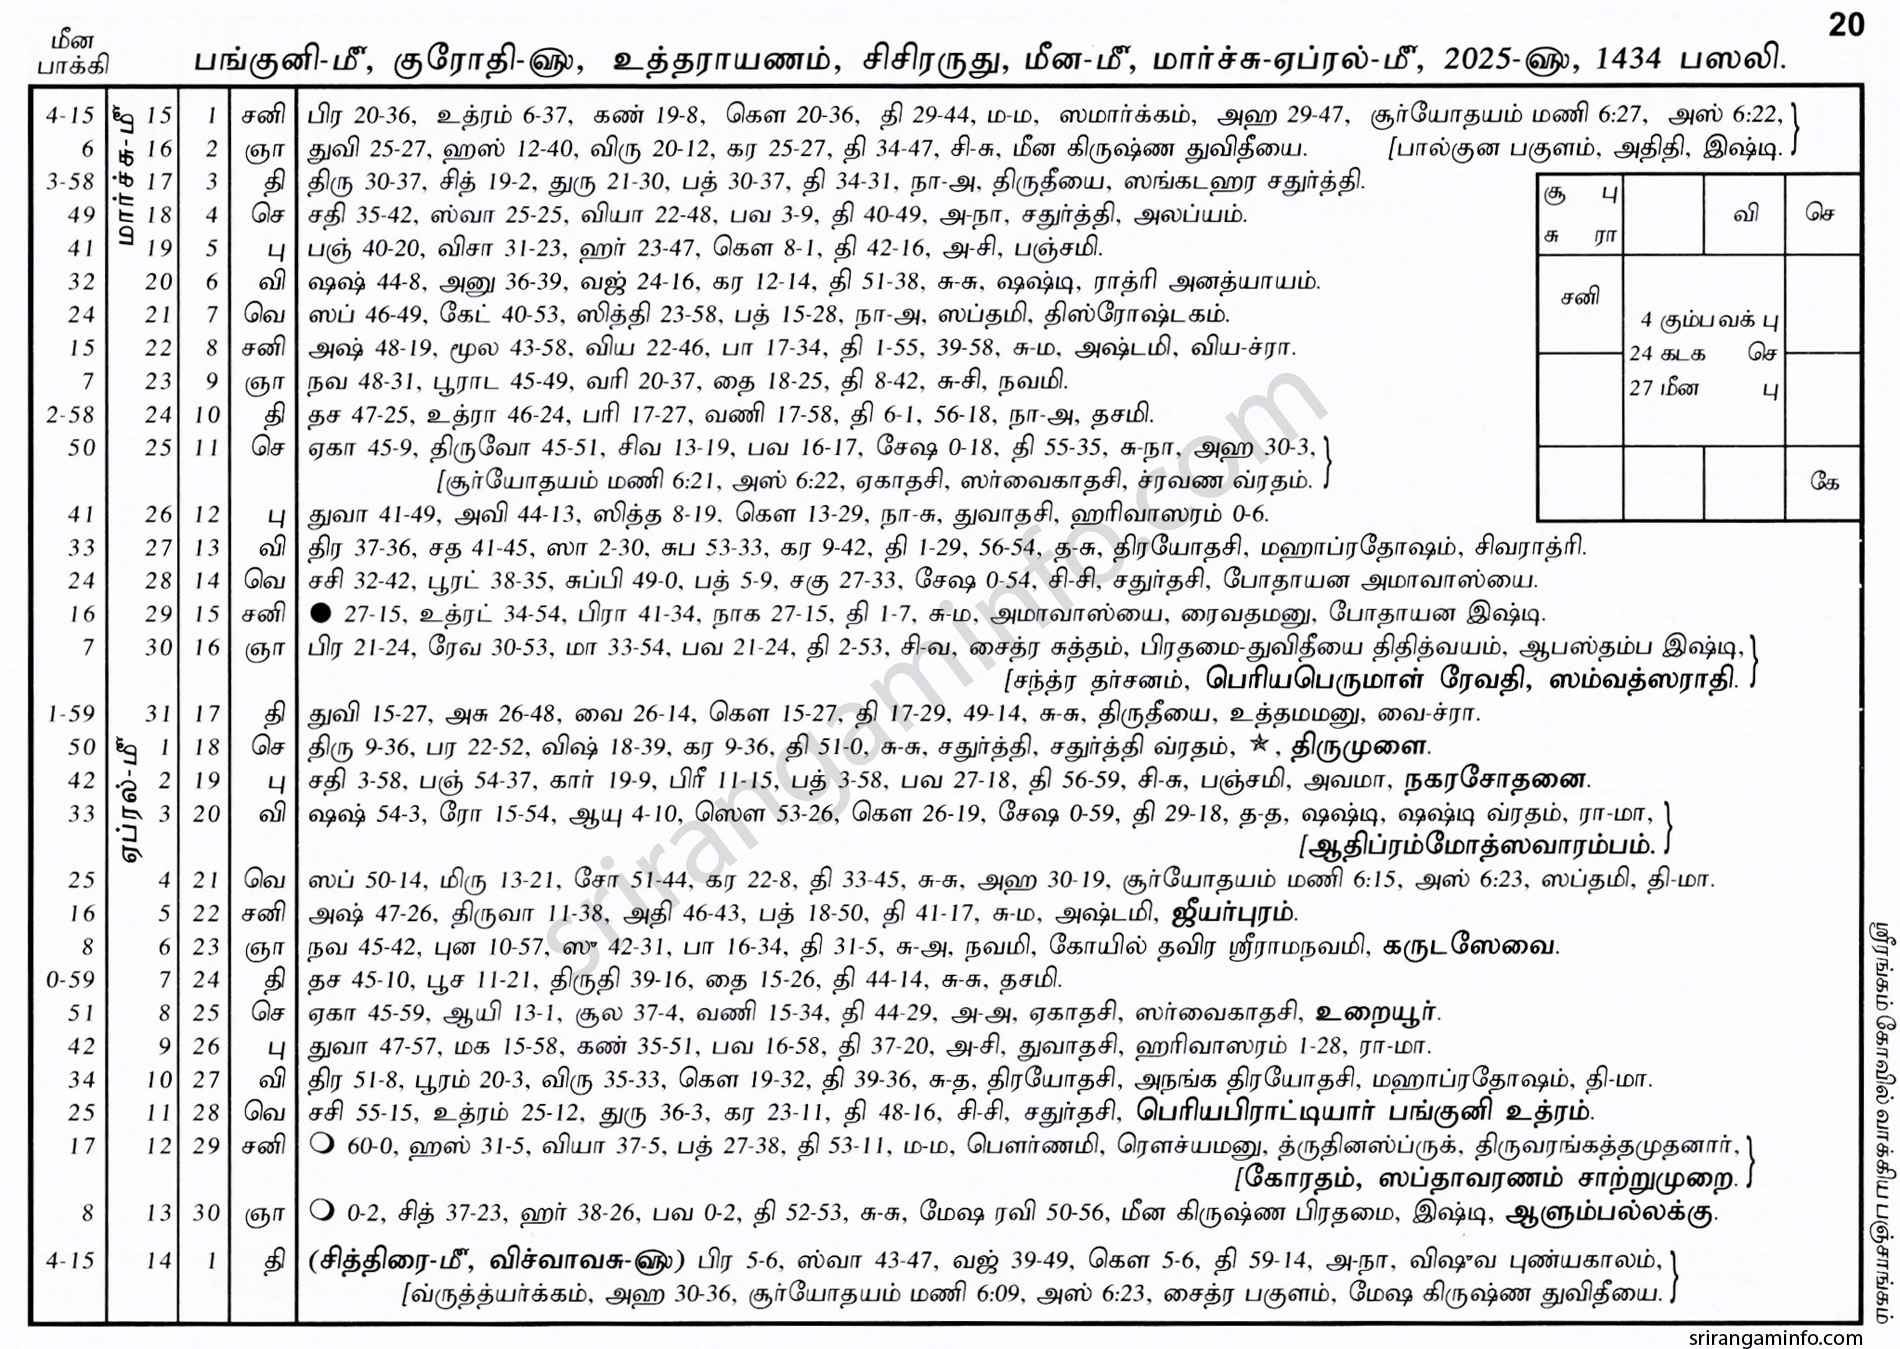 20
மீன
பாக்கி
பங்குனி-மீ௴, குரோதி-௵, உத்தராயணம், சிசிரருது, மீன-௴, மார்ச்சு-ஏப்ரல்-௴, 2025-௵, 1434 பஸலி.
மார்ச்சு-௴
4-15 15 1 சனி பிர 20-36, உத்ரம் 6-37, கண் 19-8, கௌ 20-36, தி 29-44, ம-ம, ஸமார்க்கம், அஹ 29-47, சூர்யோதயம் மணி 6:27, அஸ் 6:22,
6 16 2 ஞா துவி 25-27, ஹஸ் 12-40, விரு 20-12, கர 25-27, தி 34-47, சி-சு, மீன கிருஷ்ண துவிதீயை. [பால்குன பகுளம், அதிதி, இஷ்டி.
3-58 17 3 தி திரு 30-37, சித் 19-2, துரு 21-30, பத் 30-37, தி 34-31, நா-அ, திருதீயை, ஸங்கடஹர சதுர்த்தி.
49 18 4 செ சதி 35-42, ஸ்வா 25-25, வியா 22-48, பவ 3-9, தி 40-49, அ-நா, சதுர்த்தி, அலப்யம்.
41 19 5 பு பஞ் 40-20, விசா 31-23, ஹர் 23-47, கௌ 8-1, தி 42-16, அ-சி, பஞ்சமி.
32 20 6 வி ஷஷ் 44-8, அனு 36-39, வஜ் 24-16, கர 12-14, தி 51-38, சு-சு, ஷஷ்டி, ராத்ரி அனத்யாயம்.
24 21 7 வெ ஸப் 46-49, கேட் 40-53, ஸித்தி 23-58, பத் 15-28, நா-அ, ஸப்தமி, திஸ்ரோஷ்டகம்.
15 22 8 சனி அஷ் 48-19, மூல 43-58, விய 22-46, பா 17-34, தி 1-55, 39-58, சு-ம, அஷ்டமி, விய-ச்ரா.
7 23 9 ஞா நவ 48-31, பூராட 45-49, வரி 20-37, தை 18-25, தி 8-42, சு-சி, நவமி.
2-58 24 10 தி தச 47-25, உத்ரா 46-24, பரி 17-27, வணி 17-58, தி 6-1, 56-18, நா-அ, தசமி.
50 25 11 செ ஏகா 45-9, திருவோ 45-51, சிவ 13-19, பவ 16-17, சேஷ 0-18, தி 55-35, சு-நா, அஹ 30-3,
[சூர்யோதயம் மணி 6:21, அஸ் 6:22, ஏகாதசி, ஸர்வைகாதசி, ச்ரவண வ்ரதம்.
41 26 12 பு துவா 41-49, அவி 44-13, ஸித்த 8-19, கௌ 13-29, நா-சு, துவாதசி, ஹரிவாஸரம் 0-6.
33 27 13 வி திர 37-36, சத 41-45, ஸா 2-30, சுப 53-33, கர 9-42, தி 1-29, 56-54, த-சு, திரயோதசி, மஹாப்ரதோஷம், சிவராத்ரி.
24 28 14 வெ சசி 32-42, பூரட் 38-35, சுப்பி 49-0, பத் 5-9, சகு 27-33, சேஷ 0-54, சி-சி, சதுர்தசி, போதாயன அமாவாஸ்யை.
16 29 15 சனி ● 27-15, உத்ரட் 34-54, பிரா 41-34, நாக 27-15, தி 1-7, சு-ம, அமாவாஸ்யை, ரைவதமனு, போதாயன இஷ்டி.
7 30 16 ஞா பிர 21-24, ரேவ 30-53, மா 33-54, பவ 21-24, தி 2-53, சி-வ, சைத்ர சுத்தம், பிரதமை-துவிதீயை திதித்வயம், ஆபஸ்தம்ப இஷ்டி,
[சந்த்ர தர்சனம், பெரியபெருமாள் ரேவதி, ஸம்வத்ஸராதி.
1-59 31 17 தி துவி 15-27, அசு 26-48, வை 26-14, கௌ 15-27, தி 17-29, 49-14, சு-சு, திருதீயை, உத்தமமனு, வை-ச்ரா.
ஏப்ரல்-௴
50 1 18 செ திரு 9-36, பர 22-52, விஷ் 18-39, கர 9-36, தி 51-0, சு-சு, சதுர்த்தி, சதுர்த்தி வ்ரதம், ★, திருமுளை.
42 2 19 பு சதி 3-58, பஞ் 54-37, கார் 19-9, பிரீ 11-15, பத் 3-58, பவ 27-18, தி 56-59, சி-சு, பஞ்சமி, அவமா, நகரசோதனை.
33 3 20 வி ஷஷ் 54-3, ரோ 15-54, ஆயு 4-10, ஸௌ 53-26, கௌ 26-19, சேஷ 0-59, தி 29-18, த-த, ஷஷ்டி, ஷஷ்டி வ்ரதம், ரா-மா,
[ஆதிப்ரம்மோத்ஸவாரம்பம்.
25 4 21 வெ ஸப் 50-14, மிரு 13-21, சோ 51-44, கர 22-8, தி 33-45, சு-சு, அஹ 30-19, சூர்யோதயம் மணி 6:15, அஸ் 6:23, ஸப்தமி, தி-மா.
16 5 22 சனி அஷ் 47-26, திருவா 11-38, அதி 46-43, பத் 18-50, தி 41-17, சு-ம, அஷ்டமி, ஜீயர்புரம்.
8 6 23 ஞா நவ 45-42, புன 10-57, ஸு 42-31, பா 16-34, தி 31-5, சு-அ, நவமி, கோயில் தவிர ஸ்ரீராமநவமி, கருடஸேவை.
0-59 7 24 தி தச 45-10, பூச 11-21, திருதி 39-16, தை 15-26, தி 44-14, சு-சு, தசமி.
51 8 25 செ ஏகா 45-59, ஆயி 13-1, சூல 37-4, வணி 15-34, தி 44-29, அ-அ, ஏகாதசி, ஸர்வைகாதசி, உறையூர்.
42 9 26 பு துவா 47-57, மக 15-58, கண் 35-51, பவ 16-58, தி 37-20, அ-சி, துவாதசி, ஹரிவாஸரம் 1-28, ரா-மா.
34 10 27 வி திர 51-8, பூரம் 20-3, விரு 35-33, கௌ 19-32, தி 39-36, சு-த, திரயோதசி, அநங்க திரயோதசி, மஹாப்ரதோஷம், தி-மா.
25 11 28 வெ சசி 55-15, உத்ரம் 25-12, துரு 36-3, கர 23-11, தி 48-16, சி-சி, சதுர்தசி, பெரியபிராட்டியார் பங்குனி உத்ரம்.
17 12 29 சனி ○ 60-0, ஹஸ் 31-5, வியா 37-5, பத் 27-38, தி 53-11, ம-ம, பௌர்ணமி, ரௌச்யமனு, த்ருதினஸ்ப்ருக், திருவரங்கத்தமுதனார்,
[கோரதம், ஸப்தாவரணம் சாற்றுமுறை.
8 13 30 ஞா ○ 0-2, சித் 37-23, ஹர் 38-26, பவ 0-2, தி 52-53, சு-சு, மேஷ ரவி 50-56, மீன கிருஷ்ண பிரதமை, இஷ்டி, ஆளும்பல்லக்கு.
4-15 14 1 தி (சித்திரை-௴, விச்வாவசு-௵) பிர 5-6, ஸ்வா 43-47, வஜ் 39-49, கௌ 5-6, தி 59-14, அ-நா, விஷுவ புண்யகாலம்,
[வ்ருத்த்யர்க்கம், அஹ 30-36, சூர்யோதயம் மணி 6:09, அஸ் 6:23, சைத்ர பகுளம், மேஷ கிருஷ்ண துவிதீயை.
சூ பு
சு ரா
வி
செ
சனி
4 கும்பவக் பு
24 கடக செ
27 மீன பு
கே
ஸ்ரீரங்கம் கோவில் வாக்கிய பஞ்சாங்கம்
srirangaminfo.com
srirangaminfo.com